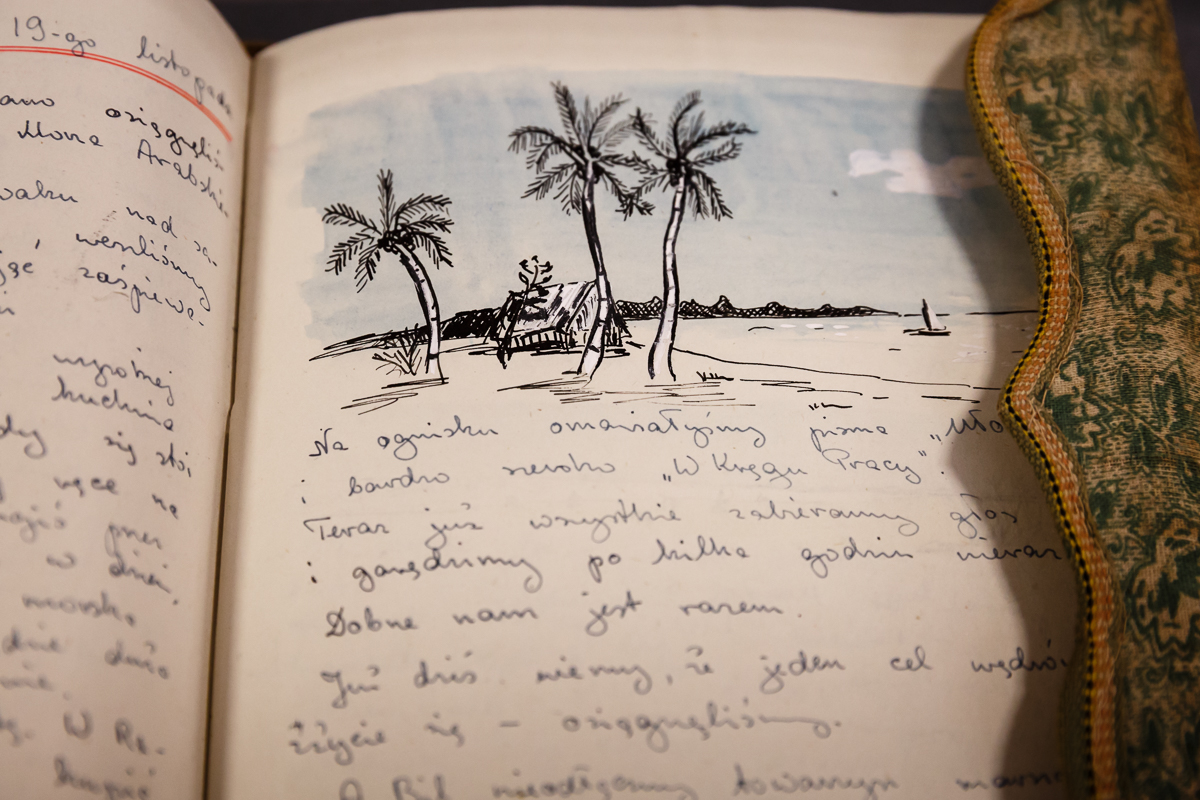 19-go listopada
ano osiągnęliśm
Morze Arabskie
waku nad sa-
wesliśmy
jąc zaśpiewa-
wszystkiej
kuchnia
dy się stoi
ręce na
przez
w dzień.
morsk
dnie dużo
nie.
W Re-
kupić
Na ognisku omawiałyśmy pisma „Mło
i bardzo szeroko „W Kręgu Pracy".
Teraz już wszystkie zabieramy głos
i gawędzimy po kilka godzin nieraz
Dobrze nam jest razem.
Już dziś wiemy, że jeden cel wędró
zżycie się – osiągnęliśmy.
A Bil nieodstępny towarzysz